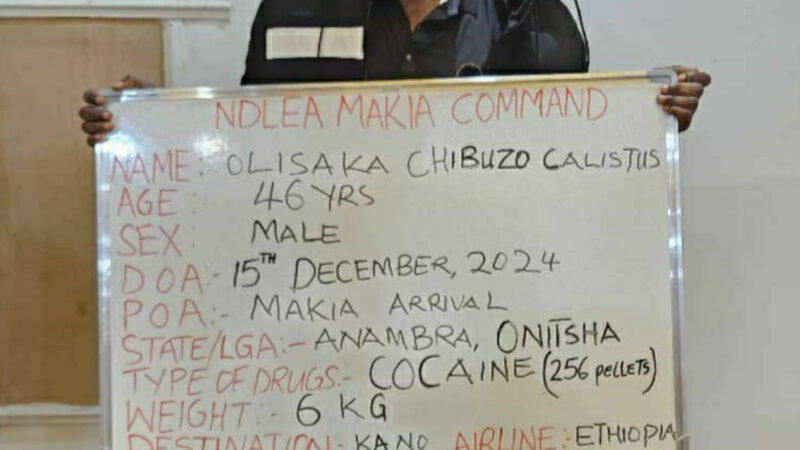 NDLEA MAKIA COMMAND
NAME:- OLISAKA CHIBUZO CALISTUS
AGE: 46 YRS
SEX: MALE
DOA:- 15TH DECEMBER, 2024
POA:- MAKIA ARRIVAL
STATE/LGA:- ANAMBRA, ONITSHA
TYPE OF DRUGS:- COCAINE (256 PELLETS)
WEIGHT:- 6 KG
DESTINATION:- KANO AIRLINE:- ETHIOPIA